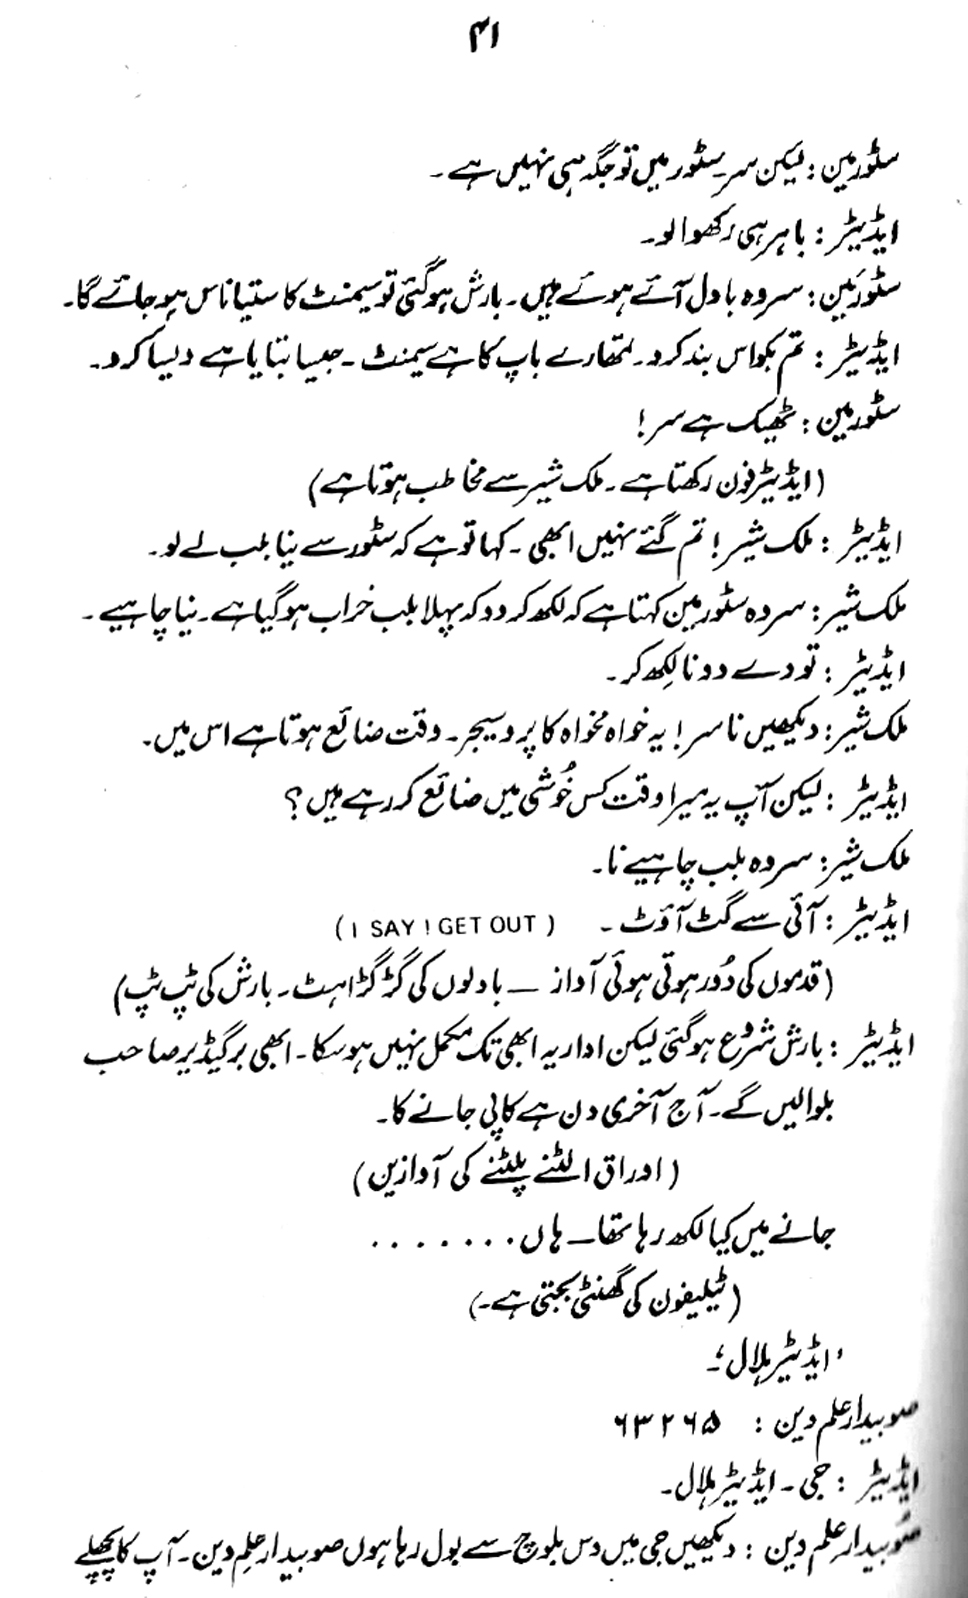 ۴۱
سٹورمین : لیکن سر۔ سٹور میں تو جگہ ہی نہیں ہے۔
ایڈیٹر : باہر ہی رکھوا لو۔
سٹورمین : سر وہ بادل آئے ہوئے ہیں۔ بارش ہو گئی تو سیمنٹ کا ستیاناس ہو جائے گا۔
ایڈیٹر : تم بکواس بند کرو۔ تمھارے باپ کا ہے سیمنٹ۔ جیسا بتایا ہے ویسا کرو۔
سٹورمین : ٹھیک ہے سر!
(ایڈیٹر فون رکھتا ہے۔ ملک شیر سے مخاطب ہوتا ہے)
ایڈیٹر : ملک شیر! تم گئے نہیں ابھی۔ کہا تو ہے کہ سٹور سے نیا بلب لے لو۔
ملک شیر : سر وہ سٹورمین کہتا ہے کہ لکھ کر دو کہ پہلا بلب خراب ہو گیا ہے۔ نیا چاہیے۔
ایڈیٹر : تو دے دو نا لِکھ کر۔
ملک شیر : دیکھیں نا سر! یہ خواہ مخواہ کا پروسیجر۔ وقت ضائع ہوتا ہے اس میں۔
ایڈیٹر : لیکن آپ یہ میرا وقت کس خُوشی میں ضائع کر رہے ہیں؟
ملک شیر : سر وہ بلب چاہیے نا۔
ایڈیٹر : آئی سے گٹ آؤٹ۔ (I SAY ! GET OUT)
(قدموں کی دُور ہوتی ہوئی آواز — بادلوں کی گڑگڑاہٹ۔ بارش کی ٹپ ٹپ)
ایڈیٹر : بارش شروع ہو گئی لیکن اداریہ ابھی تک مکمل نہیں ہو سکا۔ ابھی برگیڈیر صاحب
بلوا لیں گے۔ آج آخری دن ہے کاپی جانے کا۔
(اوراق الٹنے پلٹنے کی آوازیں)
جانے میں کیا لکھ رہا تھا — ہاں.......
(ٹیلیفون کی گھنٹی بجتی ہے۔)
'ایڈیٹر ہلال'۔
صوبیدار علم دین : ۶۳۲۶۵
ایڈیٹر : جی۔ ایڈیٹر ہلال۔
صُوبیدار علم دین : دیکھیں جی میں دس بلوچ سے بول رہا ہوں صوبیدار علِم دین۔ آپ کا پچھلے